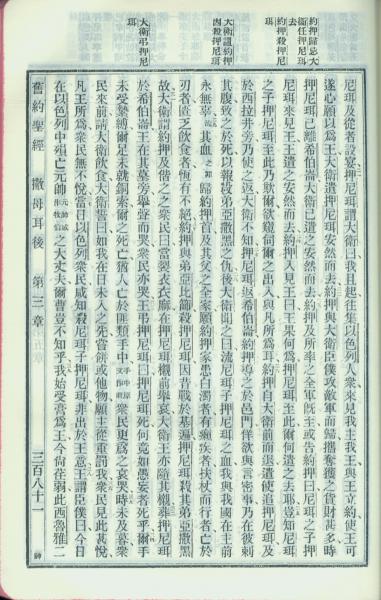 約押歸怨大
衛任押尼珥
去
約押殺押尼
珥
大衛詛約押
因殺押尼珥
大衛弔押尼
珥
尼珥及從者設宴、押尼珥謂大衛曰、我且起往集以色列人衆來見我主我王、與王立約、使王可
遂心願以爲王、大衛遣押尼珥安然而去、約押與大衛臣僕攻敵軍而歸、攜奪獲之貨財甚多、時
押尼珥已離希伯崙、大衛已遣之安然而去、約押及所率之全軍旣至、或告約押曰、尼珥之子押
尼珥來見王、王遣之安然而去、約押入見王曰、王果何爲、押尼珥至此、爾何遣之去耶、豈知尼珥
之子押尼珥至此、乃欺爾、欲窺伺爾之出入、與凡所爲耳、約押自大衛前而退、遣使追押尼珥、及
於西拉井旁、乃使之返、大衛不知、押尼珥返希伯崙、約押導之於邑門、佯欲與言密事、乃在彼刺
其腹、致之於死、以報殺弟亞撒黑之仇、後大衛聞之曰、流尼珥子押尼珥之血、我與我國在主前
永無辜、其血之罪歸約押首、及其父之全家、願約押家患白濁者、有癩疾者、扶杖而行者、亡於
刃者、匱乏飲食者、恆有不絕、約押與弟亞比篩殺押尼珥、因昔戰於基遍、押尼珥殺其弟亞撒黑
故、大衛謂約押及偕之之衆民曰、當裂衣衣麻、在押尼珥櫬前舉哀、大衛王亦隨其櫬、葬押尼珥
於希伯崙、王在其墓旁舉聲而哭、衆民亦哭、王弔押尼珥曰、押尼珥死、何竟如愚妄者死乎、爾手
未受縶縛、足未就銅索、爾之死亡、猶人亡於匪類手中、手中原文作前衆民更爲之哀哭、時未及暮、衆
民來前、請大衛飲食、大衛誓曰、如我在日未入之先、嘗餅或他物、願主從重罰我、衆民見此甚悅、
凡王所爲、衆民無不悅、當日以色列衆民咸知殺尼珥子押尼珥、非出於王意、王謂臣僕曰、今日
在以色列中殞亡元帥元帥或作牧伯之大丈夫、爾曹豈不知乎、我始受膏爲王、今尚荏弱、此西魯雅二
舊約聖經 撒母耳後 第三章 三百八十一 神